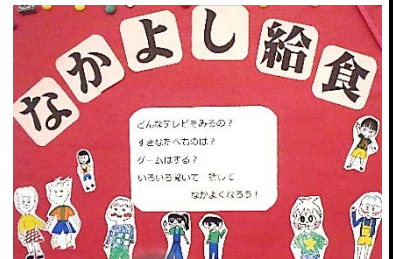 なかよし給食
どんなテレビをみるの？
すきなたべものは？
ゲームはする？
いろいろ聞いて　話して
なかよくなろう！